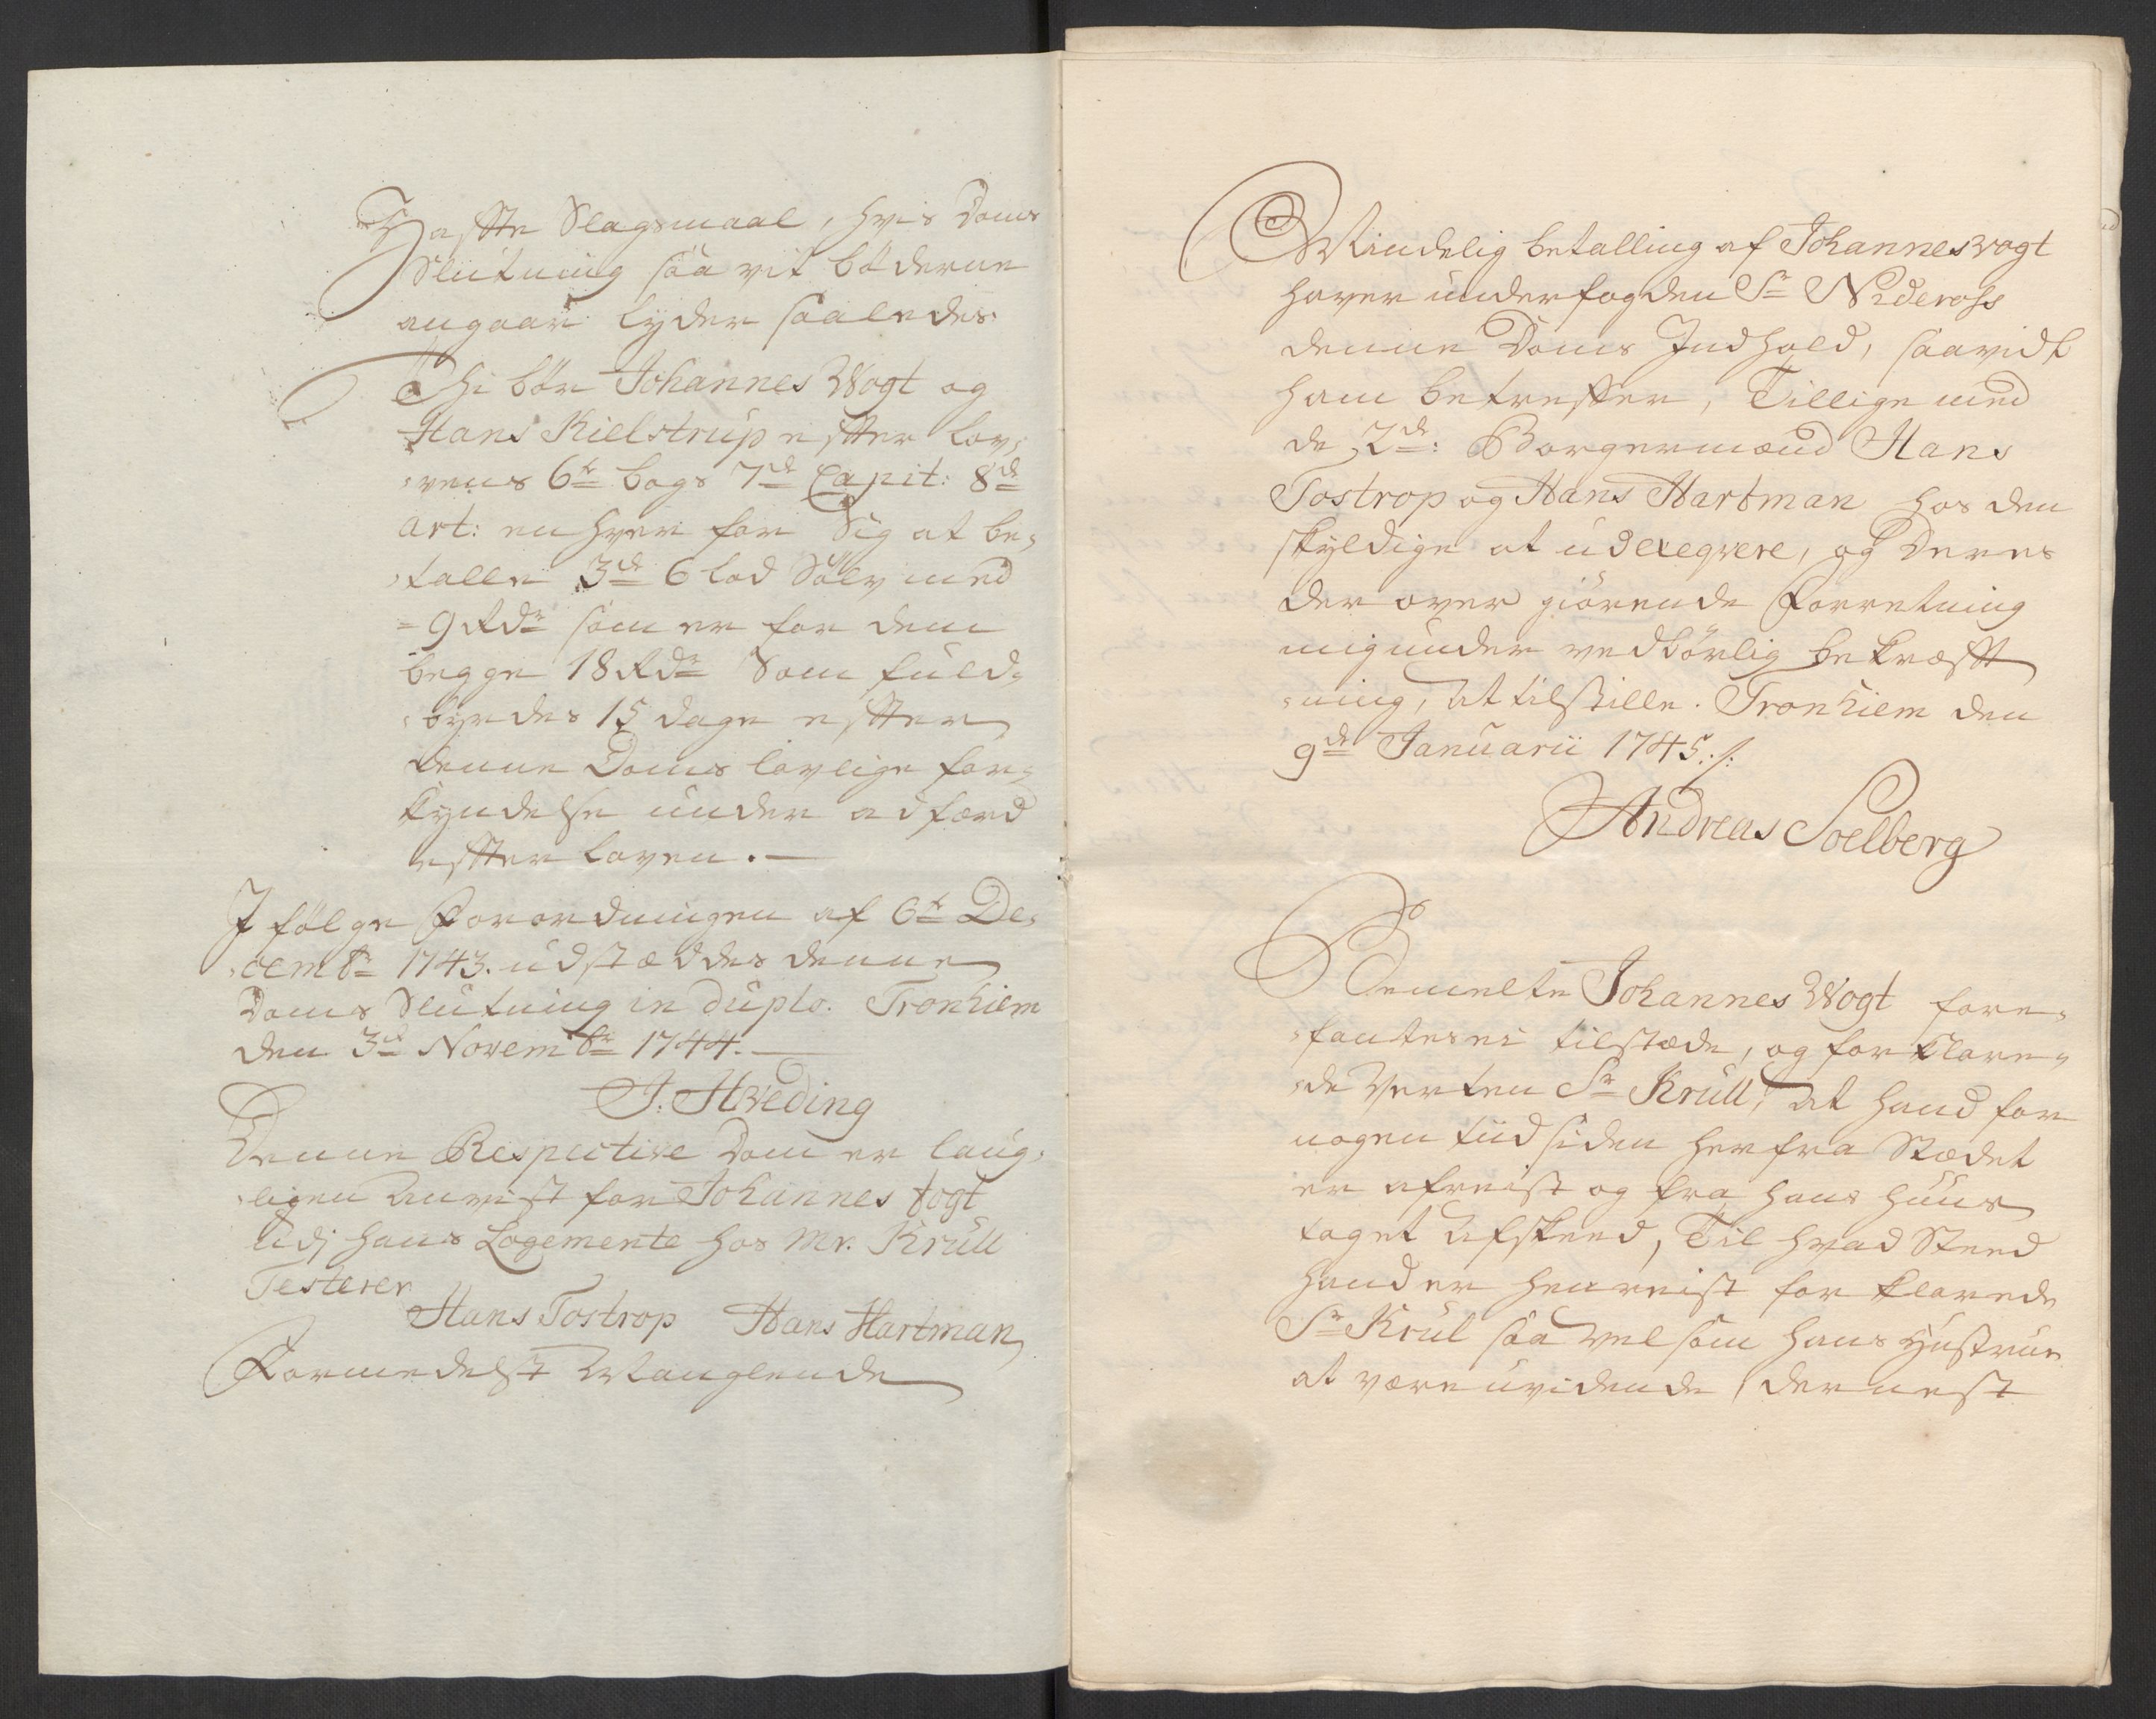 Hafte Slagsmaal, hvis Doms
Slutning saa vit bøderne
angaar lyder saaledes.
Thi bör Johannes Wogt og
Hans Kielstrup efter Lov,
,vens 6te bogs 7de Capit: 8de
art: en hver for Sig at be,
,talle 3de 6 lod Sölv med
= 9 Rdr som er for dem
begge 18 Rdr Som fuld,
,byrdes 15 dage efter
denne Doms lovlige for,
kyndelse under adfærd
efter loven. —
I fölge Forordningen af 6te De,
,cembr 1743. udstæddes denne
Doms Slutning in duplo. Tronhiem
den 3de Novembr 1744. —
J. Hveding
Denne Respective Dom er laug,
,ligen anvist for Johannes fogt
udj hans Logemente hos Mr. Krüll
Testerer
Hans Tostrop Hans Hartman
Formedelst Manglende
Mindelig betalling af Johannes vogt
haver underfogden Sr Nideross
denne Doms Indhold, saavidt
ham betreffer, Tillige med
de 2de: Borgermænd Hans
Tostrop og Hans Hartman hos den
skyldige at udexeqvere, og Deres
der over giörende Forretning
mig under vedbörlig bekræft
,ning, at tilstille. Tronhiem den
9de Januarii 1745 ./.
Andreas Soelberg
Bemelte Johannes Wogt fore,
,fantes ei tilstæde, og forklare,
,de Verten Sr Krüll, at hand for
nogen tiid siden her fra Stædet
er afreist og fra hans huus
taget Afskeed, Til hvad Steed
hand er henreist forklarede
Sr Krül saa vel som hans Hustrue
at være uvidende, dernest